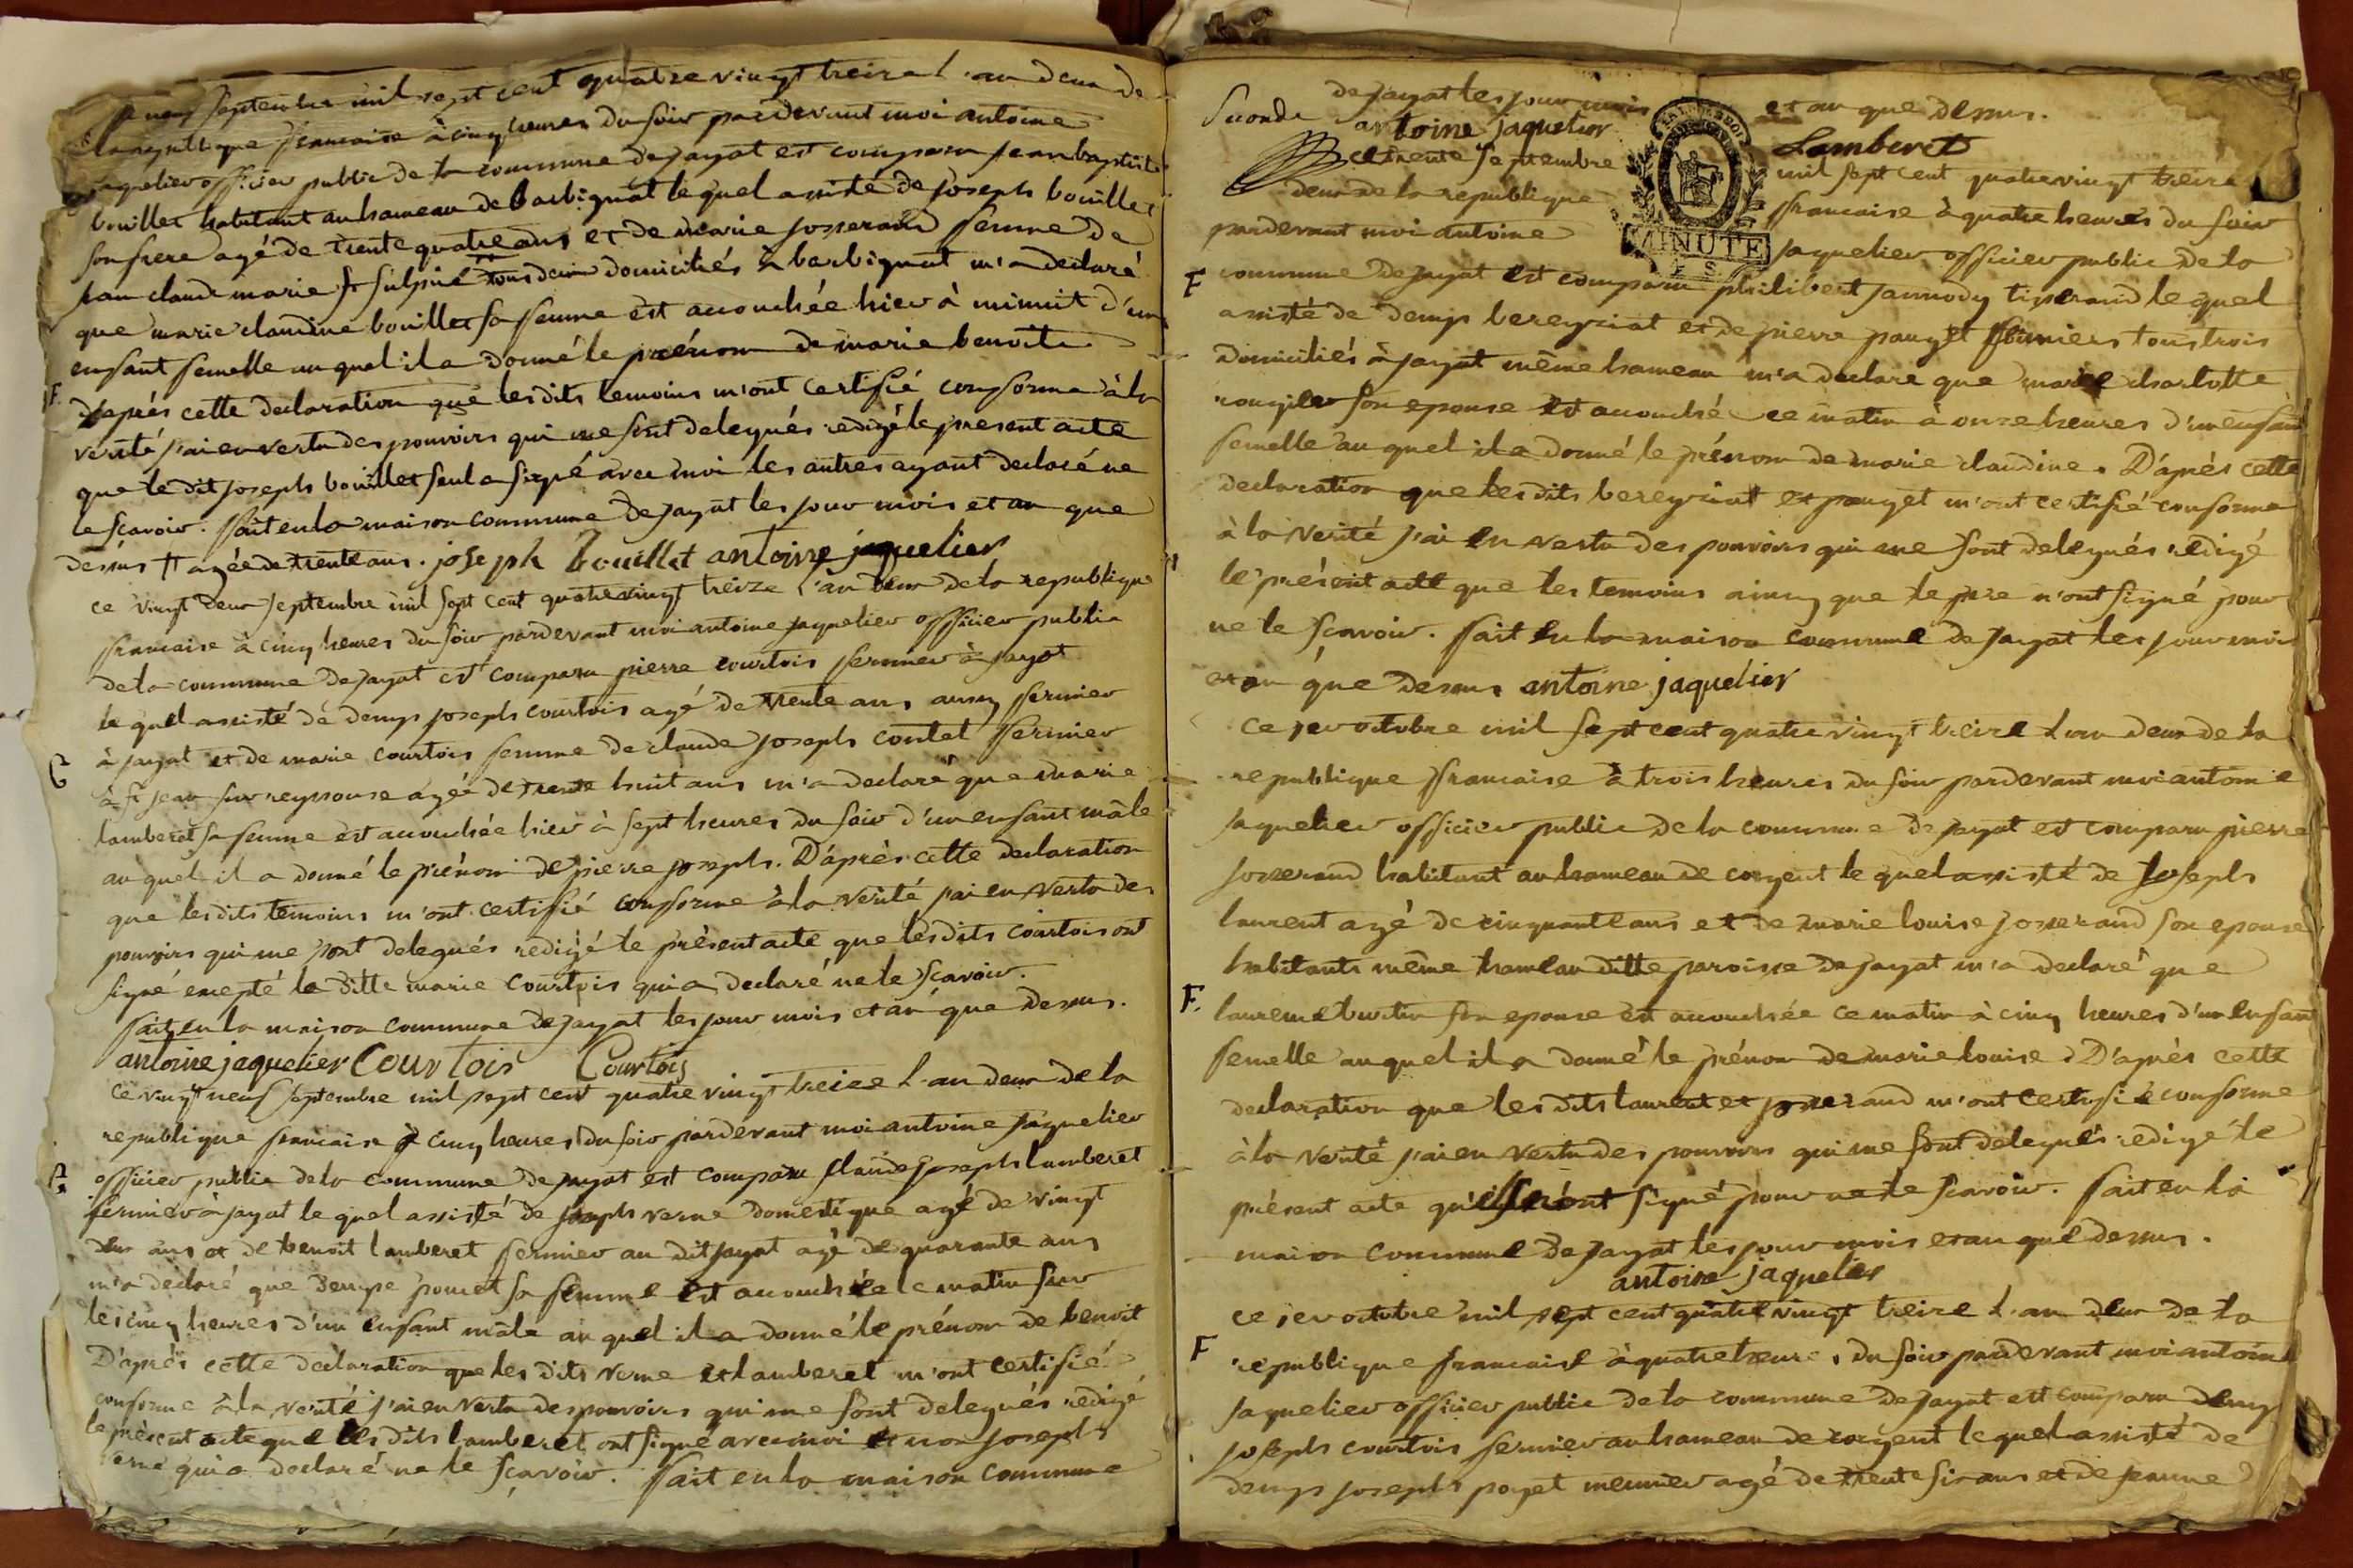 neuf septembre mil sept cent quatre vingt treize l'an deux de
la republique francaise à cinq heures du soir pardevant moi antoine
jaquelier officier public de la commune de jayat est comparu jean baptiste
bouillet habitant au hameau de barbignat le quel assisté de joseph bouillet
son frere agé de trente quatre ans et de marie josserand femme de
jean claude marie st sulpice tous deux domiciliés à barbignat m'a declaré
que marie claudine bouillet sa femme est accouchée hier à minuit d'un
enfant femelle au quel il a donné le prénom de marie benoite
F.
D'après cette declaration que les dits temoins m'ont certifié conforme à la
verité j'ai en vertu des pouvoirs qui me sont delegués redigé le present acte
que le dit joseph bouillet seul a signé avec moi les autres ayant declaré ne
le scavoir. fait en la maison commune de jayat les jour mois et an que
dessus # agée de trente ans. joseph bouillet antoine jaquelier
ce vingt deux septembre mil sept cent quatre vingt treize l'an deux de la republique
francaise à cinq heures du soir pardevant moi antoine jaquelier officier public
de la commune de jayat est comparu pierre courtois fermier à jayat
le quel assisté de denys joseph courtois agé de trente ans aussy fermier
à jayat et de marie courtois femme de claude joseph contet fermier
G
à st jean sur reyssouze agée de trente huit ans m'a declaré que marie
lamberet sa femme est accouchée hier à sept heures du soir d'un enfant mâle
au quel il a donné le prénom de pierre joseph. D'après cette declaration
que les dits temoins m'ont certifié conforme à la verité j'ai en vertu des
pouvoirs qui me sont delegués redigé le présent acte que les dits courtois ont
signé excepté la ditte marie courtois qui a declaré ne le scavoir.
fait en la maison commune de jayat les jour mois et an que dessus.
antoine jaquelier Courtois Courtois
Ce vingt neuf septembre mil sept cent quatre vingt treize l'an deux de la
republique francaise à cinq heures du soir pardevant moi antoine jaquelier
officier public de la commune de jayat est comparu claude joseph lamberet
fermier à jayat le quel assisté de joseph verne domestique agé de vingt
deux ans et de benoit lamberet fermier au dit jayat agé de quarante ans
m'a declaré que denyse poncet sa femme est accouchée ce matin sur
les cinq heures d'un enfant mâle au quel il a donné le prénom de benoit
D'après cette declaration que les dits verne et lamberet m'ont certifié
conforme à la verité j'ai en vertu des pouvoirs qui me sont delegués redigé
le présent acte que les dits lamberet ont signé avec moi et non joseph
verne qui a declaré ne le scavoir. fait en la maison commune
de jayat les jour mois et an que dessus.
antoine jaquelier Lamberet
ce trente septembre mil sept cent quatre vingt treize
deux de la republique francaise à quatre heures du soir
pardevant moi antoine jaquelier officier public de la
MINUTE
F
commune de jayat est comparu philibert jannody tisserand le quel
assisté de denys bereyziat et de pierre pauget fermiers tous trois
domiciliés à jayat même hameau m'a declare que marie charlotte
son epouse est accouchée ce matin à onze heures d'un enfant
femelle au quel il a donné le prénom de marie claudine. D'après cette
declaration que les dits bereyziat et pauget m'ont certifié conforme
à la verité j'ai en vertu des pouvoirs qui me sont delegués redigé
le présent acte que les temoins ainsy que le père n'ont signé pour
ne le scavoir. fait en la maison commune de jayat les jour mois
et an que dessus antoine jaquelier
Ce 1er octobre mil sept cent quatre vingt treize l'an deux de la
republique francaise à trois heures du soir pardevant moi antoine
jaquelier officier public de la commune de jayat est comparu pierre
josserand habitant au hameau de corgent le quel assisté de joseph
laurent agé de cinquante ans et de marie louise josserand son epouse
habitants même hameau ditte paroisse de jayat m'a declaré que
F.
son epouse est accouchée ce matin à cinq heures d'un enfant
femelle au quel il a donné le prénom de marie louise. D'après cette
declaration que les dits laurent et josserand m'ont certifié conforme
à la verité j'ai en vertu des pouvoirs qui me sont delegués redigé le
présent acte qu'ils n'ont signé pour ne le scavoir. fait en la
maison commune de jayat les jour mois et an que dessus.
antoine jaquelier
ce 1er octobre mil sept cent quatre vingt treize l'an deux de la
F
republique francaise à quatre heures du soir pardevant moi antoine
jaquelier officier public de la commune de jayat est comparu denys
joseph courtois fermier au hameau de corgent le quel assisté de
denys joseph poget meunier agé de trente six ans et de jeanne